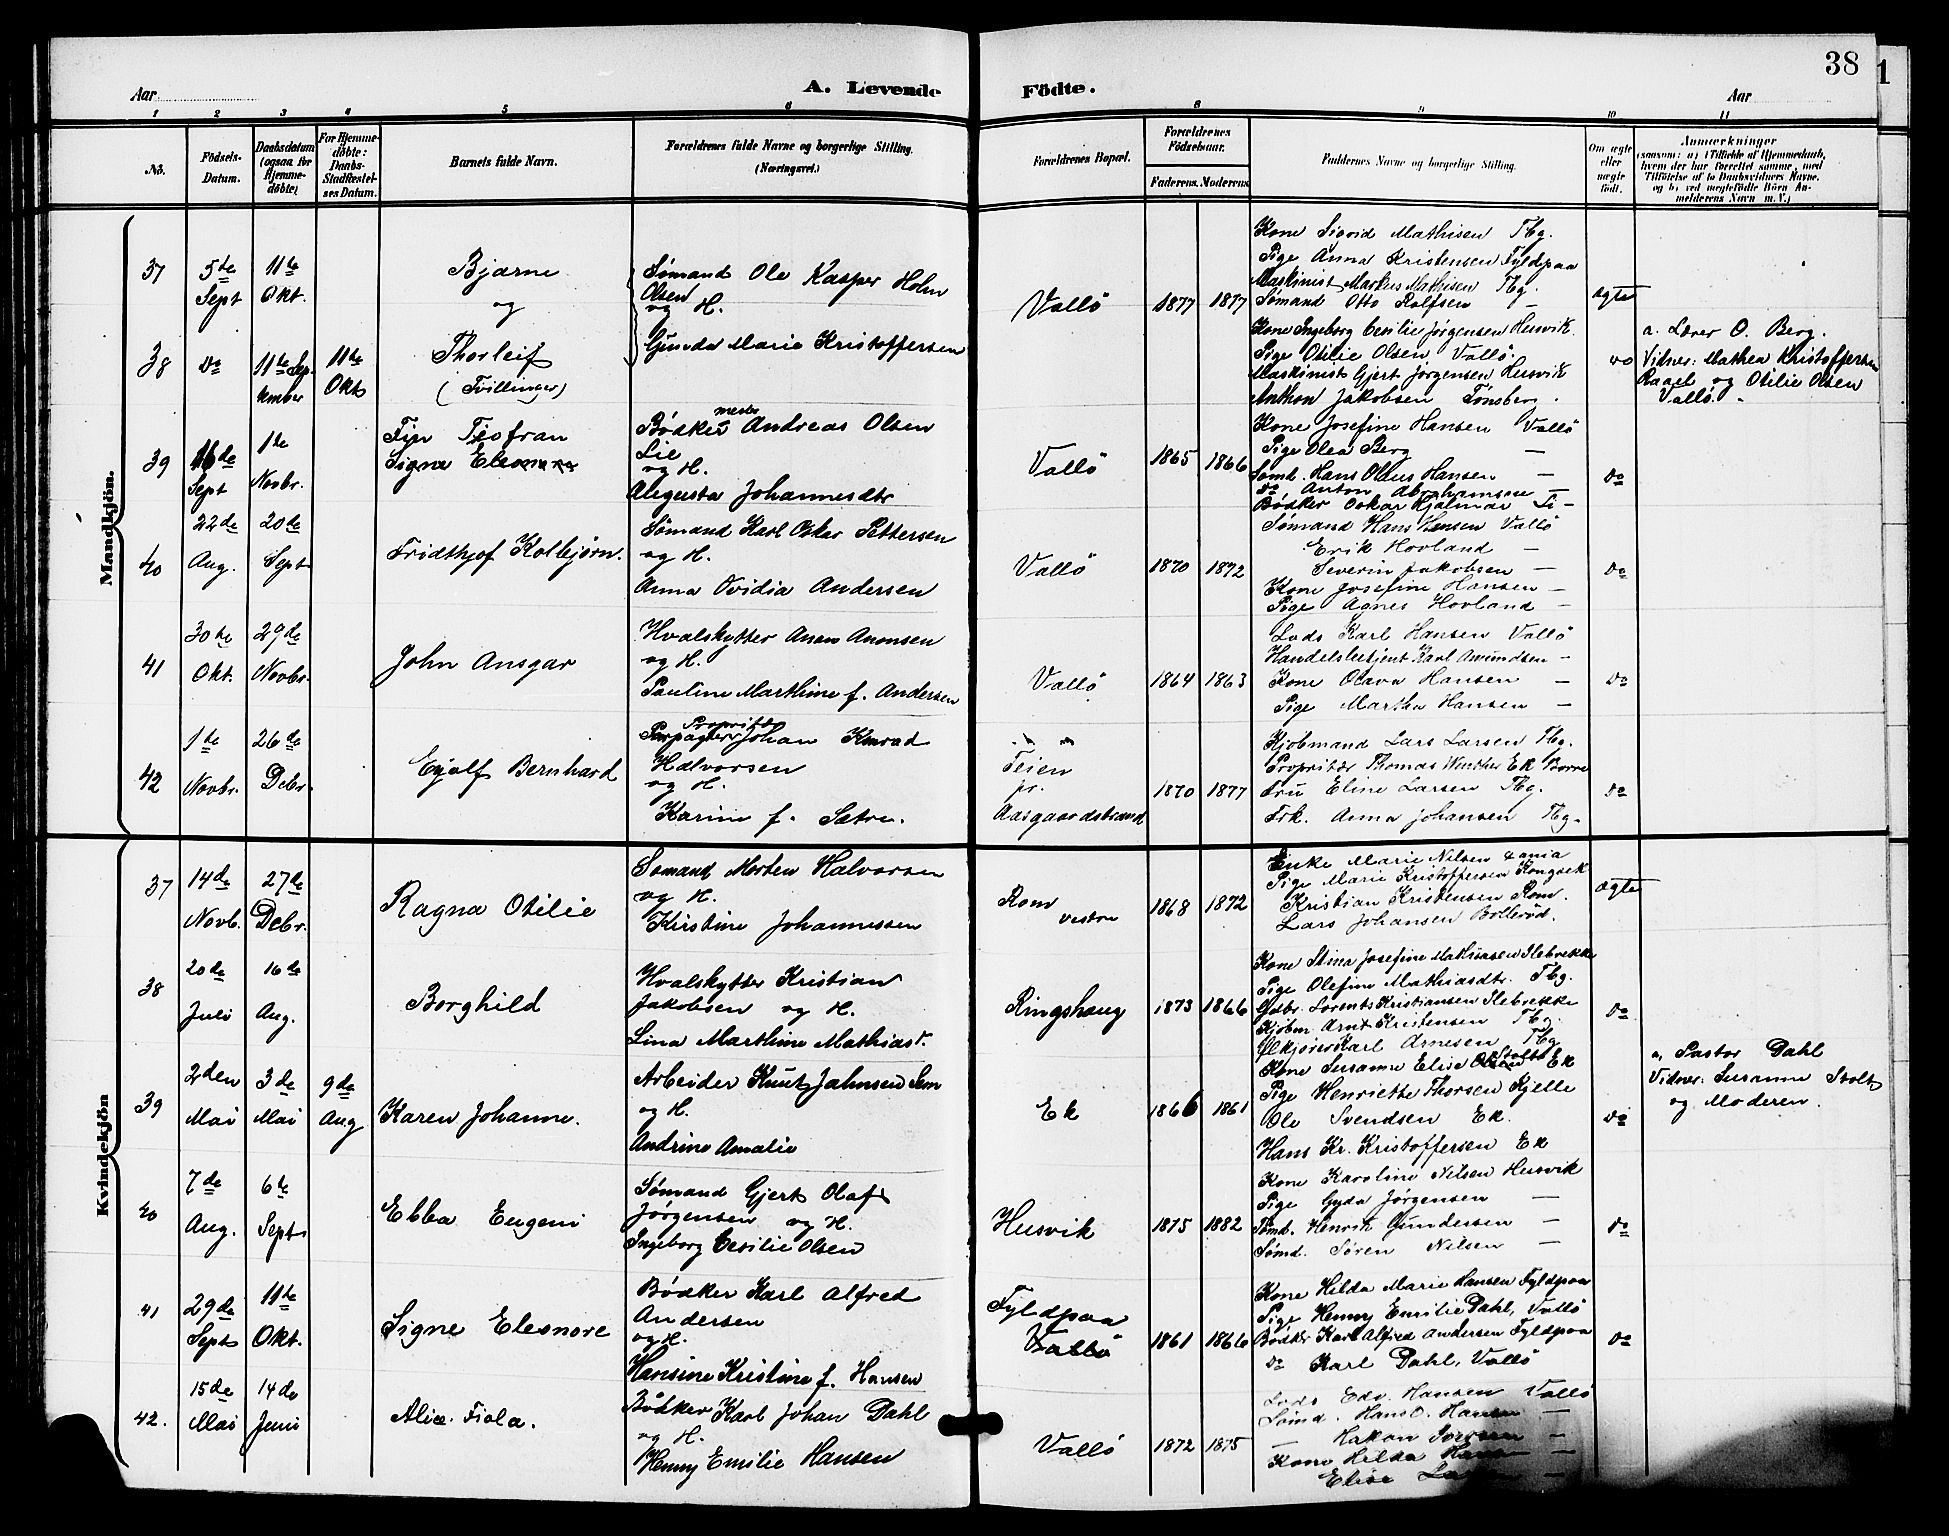 38
1
Aar
A. Levende
Födte.
Aar
1 2 3 4 5 6 8 9 10 11
No.
Födsels-
Datum.
Daabsdatum
(ogsaa for
Hjemme-
döbte)
For Hjemme-
döbte:
Daabs-
Stadfæstel-
ses Datum.
Barnets fulde Navn.
Forældrenes fulde Navne og borgerlige Stilling.
(Næringsvei.)
Forældrenes Bopæl.
Forældrenes
Födselsaar.
Faderens. Moderens.
Faddernes Navne og borgerlige Stilling.
Om ægte
eller
uægte
födt.
Anmærkninger
(saasom: a) i Tilfælde af Hjemmedaab,
hvem der har forrettet samme, med
Tilföielse af to Daabsvidners Navne.
og b) ved uegtefödte Börn An-
melderens Navn m. V.)
Mandkjön.
37
5te
Sept
11te
Okt.
Bjarne
og
Sømand Ole Kasper Holm
Olsen
og H.
Gunda Marie Kristoffersen
Vallö
1877
1877
Kone Sigrid Mathisen Tbg.
Pige Anna Kristensen Fyldpaa
Maskinist Markus Mathisen Tbg.
Sømand Otto Rolfsen —
ægte
38
Do
11te Sep-
tember
11te
Okt
Thorleif
(Tvillinger)
Kone Ingeborg Cecilie Jørgensen Husvik
Pige Otilie Olsen Vallö
Maskinist Gjert Jørgensen Husvik
Anthon Jakobsen Tønsberg.
Do
a. Lærer O. Berg.
Vidner: Mathea Kristoffersen
Raael og Otilie Olsen
Vallö.
39
16de
Sept
1te
Novbr.
Finn Teofran
Signe Eleonora
Bødkermester Andreas Olsen
Lie
og H.
Augusta Johannesdtr
Vallö
1865
1866
Kone Josefine Hansen Vallö
Pige Olea Berg —
Sømd. Hans Olaus Hansen —
Do Anton Abrahamsen —
Bødker Oskar Hjalmar Li —
Do
40
22de
Aug.
20de
Sept
Fridthjof Kolbjørn.
Sømand Karl Oskar Pettersen
og H.
Anna Ovidia Andersen
Vallö
1870
1872
Sømand Hans Hansen Vallö
Erik Hovland —
Severin Jakobsen —
Kone Josefine Hansen —
Pige Agnes Hovland —
Do
41
30de
Okt.
29de
Novbr.
John Ansgar
Hvalskytter Anen Anonsen
og H.
Pauline Marthine f. Andersen
Vallö
1864
1863
Lods Karl Hansen Vallö
Handelsbetjent Karl Amundsen —
Kone Olava Hansen —
Pige Martha Hansen —
Do
42
1te
Novbr.
26de
Debr.
Eyolf Bernhard
Propritær
Johan Konrad
Halvorsen
og H.
Karine f. Sætre.
Teien
pr.
Aasgaardstrand
1870
1877
Kjøbmand Lars Larsen Tbg.
Propritær Thomas Wincher Ek Borre
Fru Eline Larsen Tbg.
Frk. Anna Johansen Tbg.
Do
Kvindekjön
37
14de
Novb.
27de
Debr.
Ragna Otilie
Sømand Morten Halvorsen
og H.
Kirstine Johannessen
Rom
vestre
1868
1872
Enke Marie Nilsen
Pige Marie Kristoffersen Kongseik
Kristian Kristensen Rom.
Lars Johansen Bollerød.
ægte
38
20de
Juli
16de
Aug.
Borghild
Hvalskytter Kristian
Jakobsen og H.
Lina Marthine Mathiasd.
Ringshaug
1873
1866
Kone Stina Josefine Mathiasen Ilebrekke
Pige Olefine Mathiasdtr. Tbg.
Gdbr. Lorents Kristiansen Ilebrekke
Kjøbm. Arnt Kristensen Tbg.
Ølkjører Karl Arnesen Tbg
Do
39
2den
Mai
3de
Mai
9de
Aug
Karen Johanne.
Arbeider Knut Jahnsen Sem
og H.
Andrine Amalie
Ek
1866
1861
Kone Susanne Elise Stolt Ek
Pige Henriette Thorsen Kjelle
Ole Svendsen Ek.
Hans Kr. Kristoffersen Ek
Do
a, Pastor Dahl
Vidner: Susanne Stolt
og Moderen.
40
7de
Aug.
6te
Sept
Ebba Eugeni
Sømand Gjert Olaf
Jørgensen og H.
Ingeborg Cecilie Olsen
Husvik
1875
1882
Kone Karoline Nilsen Husvik
Pige Gyda Jørgensen —
Sømd. Henrik Gundersen —
Sømd. Søren Nilsen —
Do
41
29de
Sept
11te
Okt.
Signe Eleonore
Bødker Karl Alfred
Andersen
og H.
Hansine Kristine f. Hansen
Fyldpaa
Vallö
1861
1866
Kone Hilda Marie Hansen Fyldpaa
Pige Henny Emilie Dahl, Vallö
Bødker Karl Alfred Andersen Fyldpaa
Do Karl Dahl, Vallö
Do
42.
15de
Mai
14de
Juni
Alice Fiola.
Bødker Karl Johan Dahl
og H.
Henny Emilie Hansen
Vallö
1872
1875
Lods Edv. Hansen Vallö
Sømd. Hans C. Hansen —
— Hakon Iversen —
Kone Hilda —
Elise —